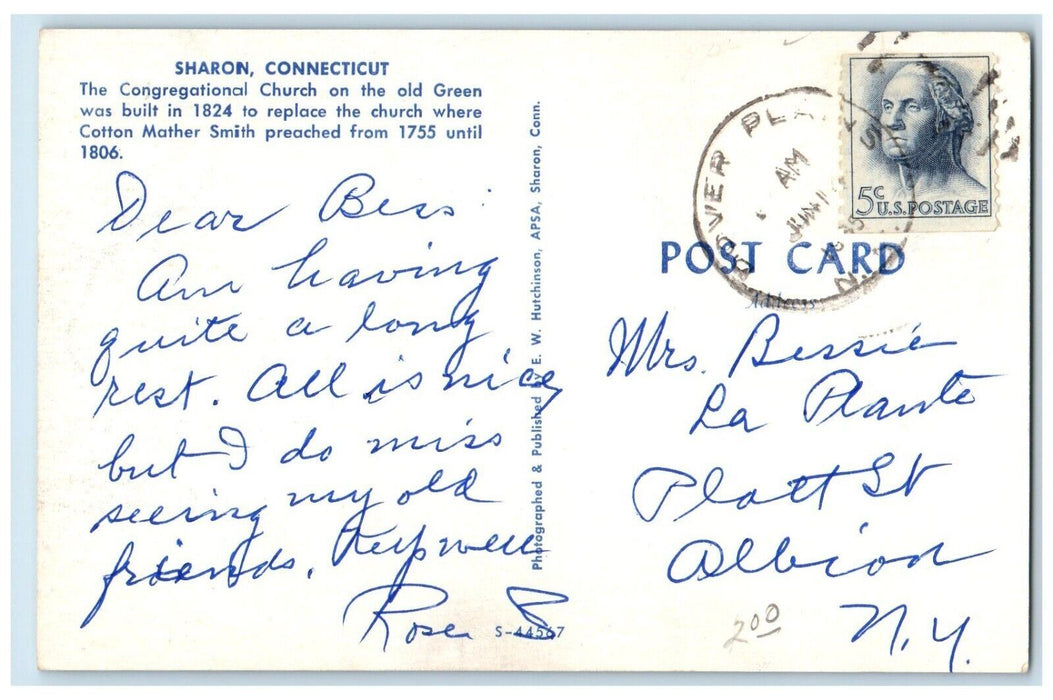 SHARON, CONNECTICUT
The Congregational Church on the old Green
was built in 1824 to replace the church where
Cotton Mather Smith preached from 1755 until
1806.
Dear Bess:
Am having
quite a long
rest. All is nice,
but I do miss
seeing my old
friends. Keep well
Rose S
S-44567
Photographed & Published by E. W. Hutchinson, APSA, Sharon, Conn.
DOVER PLAINS
AM
JUN
N.Y.
5c
U.S. POSTAGE
POST CARD
Address
Mrs. Bessie
La Plante
Platt St
Albion
N.Y.
2.00